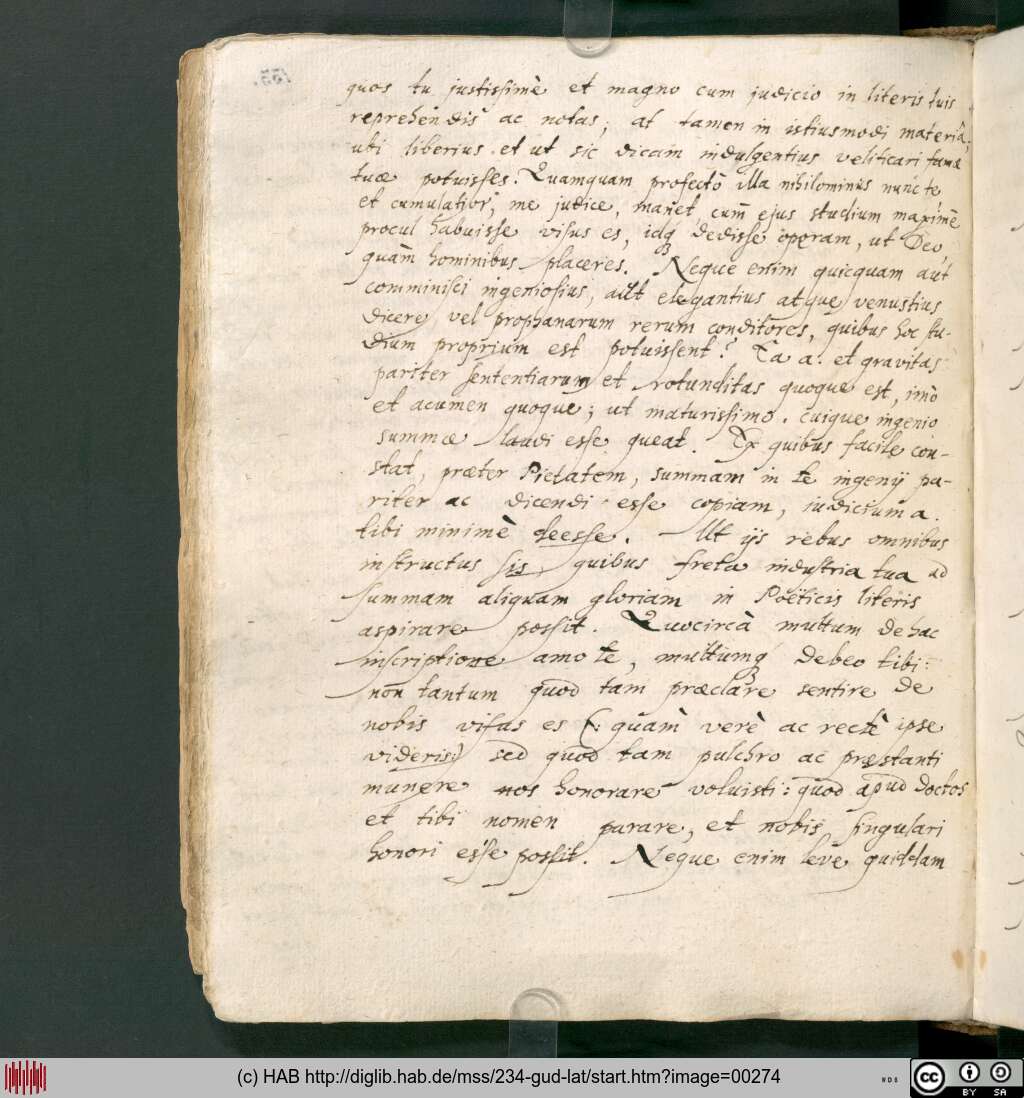 quos tu justissimè et magno cum judicio in literis tuis
reprehendis ac notas; at tamen in istiusmodi materia,
ubi liberius et ut sic dicam indulgentius veliticari famæ
tuæ potuisses. Quamquam profectò illa nihilominus nunc te
et cumulatior, me judice, manet, cum ejus studium maximè
procul habuisse visus es, idq; dedisse operam, ut Deo
quàm hominibus placeres. Neque enim quicquam aut
comminisci ingeniosius, aut elegantius atque venustius
dicere, vel prophanarum rerum conditores, quibus hoc stu-
dium proprium est potuissent? Ea a. et gravitas
pariter sententiarum et rotunditas quoque est, imò
et acumen quoque; ut maturissimo cuique ingenio
summæ laudi esse queat. Ex quibus facile con-
stat, præter Pietatem, summam in te ingenij pa-
riter ac dicendi esse copiam, iudicium a.
tibi minimè deesse. Ut ijs rebus omnibus
instructus sis, quibus freta industria tua ad
summam aliquam gloriam in Poëticis literis
aspirare possit. Quocircà multum de hac
inscriptione amo te, multumq; debeo tibi:
non tantum quod tam præclare sentire de
nobis visus es (: quàm verè ac rectè ipse
videris:) sed quod tam pulchro ac præstanti
munere nos honorare voluisti: quod apud doctos
et tibi nomen parare, et nobis singulari
honori esse possit. Neque enim leve quiddam
155.
(c) HAB http://diglib.hab.de/mss/234-gud-lat/start.htm?image=00274
cc BY SA